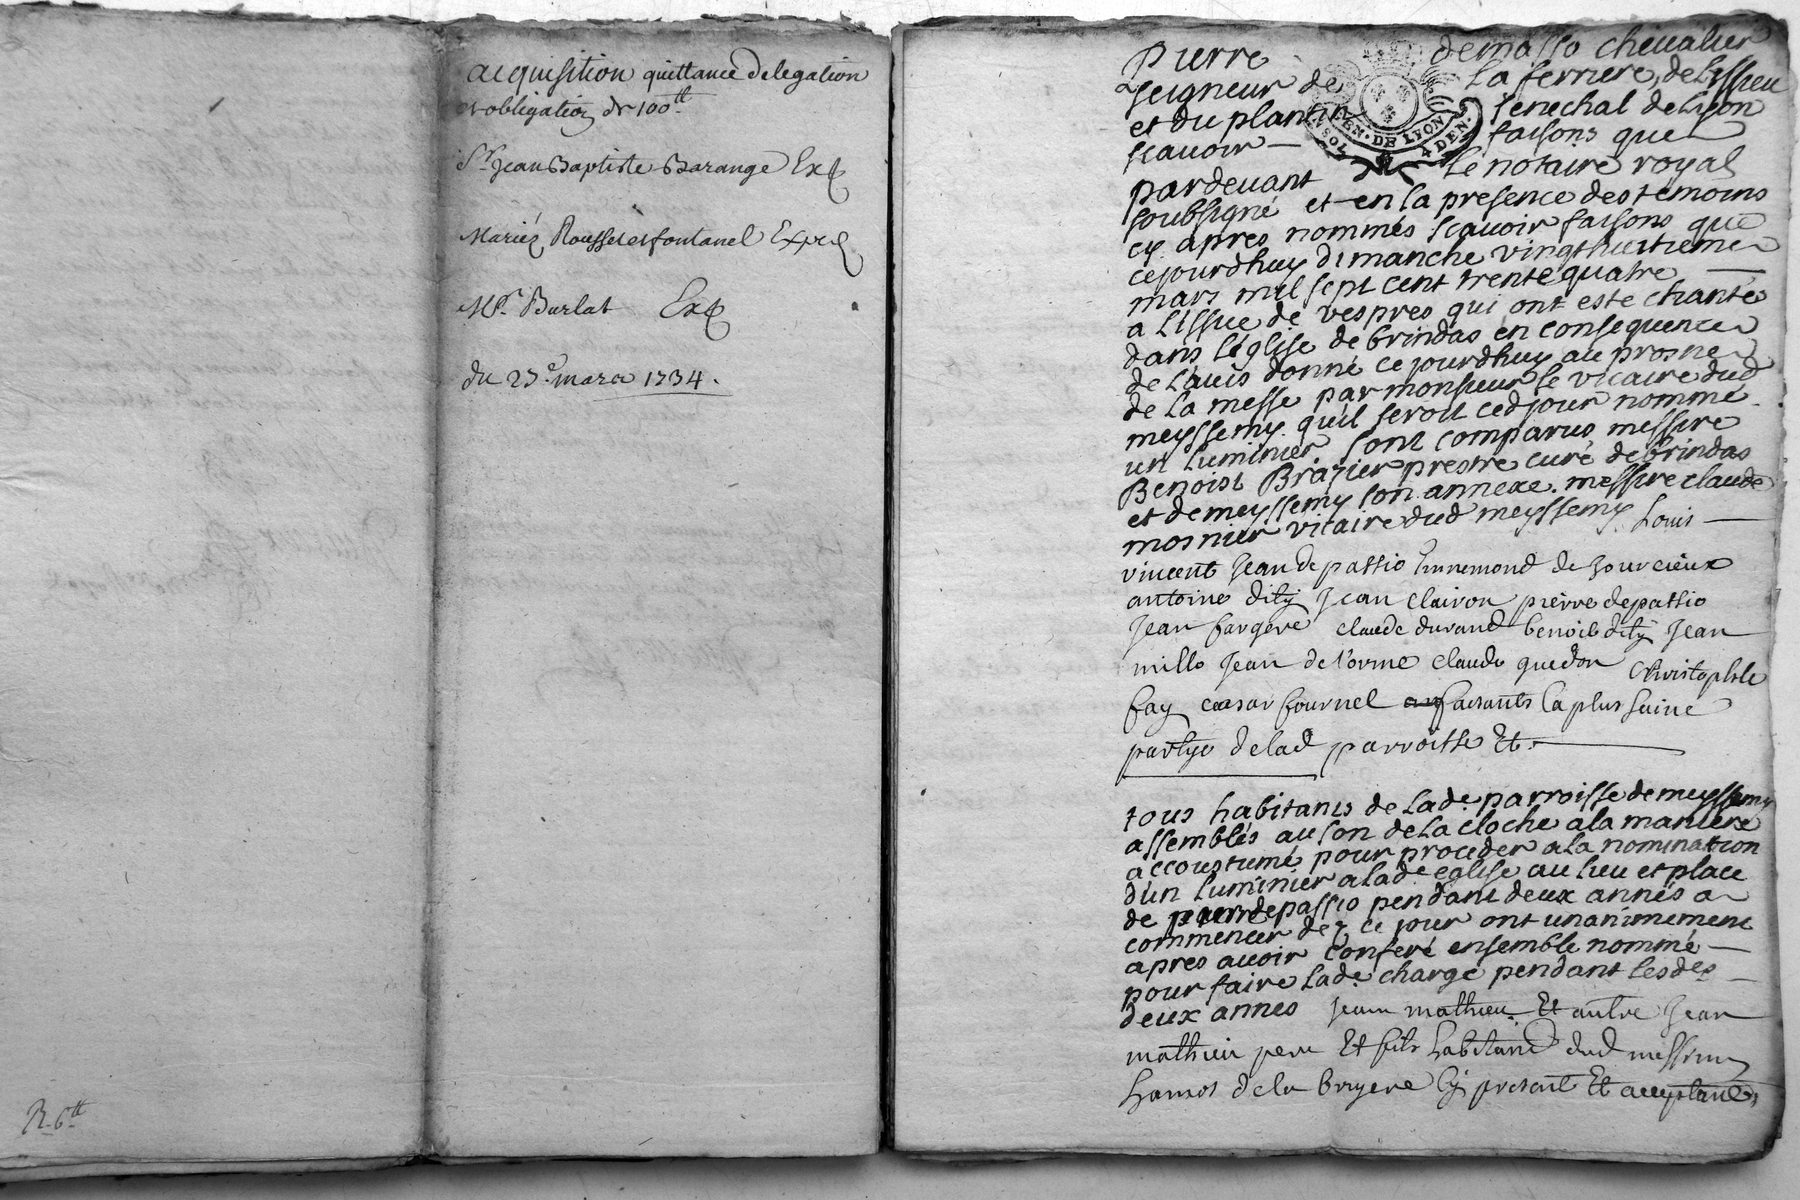 acquisition quittance delegation
et obligation de 100tt
Sr. Jean Baptiste Barange Exp
Mariéz Rousset et fontanel Exp
Mr. Burlat Exp
du 23e. mars 1734.
R. 6tt
Pierre demasso chevalier
seigneur de La ferriere, de Lissieu
et du plantin senechal de Lyon
scavoir faisons que
GEN. DE LYON
SOL 4 DEN.
pardevant Le notaire royal
soubsigné et en la presence des temoins
cy apres nommés scavoir faisons que
cejourdhuy dimanche vingt huitieme
mars mil sept cent trente quatre
a L'issue de vespres qui ont esté chanté
dans l'eglise de brindas en consequence
de L'auis donné ce jourdhuy au prosne
de La messe par monsieur le vicaire dud
meyssemy quil seroit ced jour nommé
un Luminier sont comparus messire
Benoist Brazier prestre curé de brindas
et de meyssemy son annexe. messire claude
mosnier vicaire dud meyssemy Louis
vincent Jean depassio Ennemond de Jourcieux
antoine dity Jean clairon pierre depassio
Jean fargere claude durand benoit dity Jean
millo Jean de l'orme claude quedon Christophle
fay cæsar fournel faisants la plus saine
partye de lad parroisse Et
tous habitants de Lade. parroisse de meyssemy
assemblés au son de La cloche a la maniere
accoustumé pour proceder a la nomination
d'un Luminier a lade eglise au lieu et place
de pierre depassio pendant deux annés a
commencer dez ce jour ont unanimement
apres auoir conferé ensemble nommé
pour faire Lade. charge pendant lesdes
deux annes Jean mathieu Et autre Jean
mathieu pere Et fils habitand dud messimy
hameau de la bruyere Cy present Et acceptant,